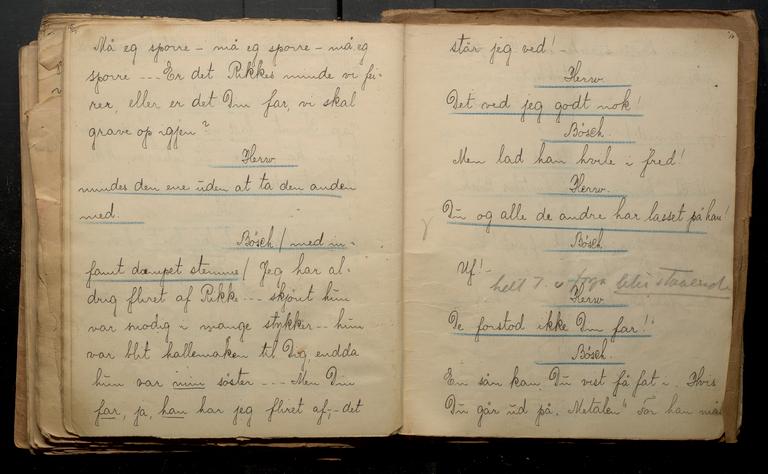 Må eg spørre – må eg spørre – må eg
spørre --- Er det Rikkes minde vi fei-
rer, eller er det Din far, vi skal
grave op igjen?
Herw.
mindes den ene uden at ta den anden
med.
Bósch / med in-
famt dæmpet stemme / Jeg har al-
drig fliret af Rikke --- skjønt hun
var snodig i mange stykker -- hun
var blit hallemaken til Dig, endda
hun var min søster --- Men Din
far, ja, han har jeg fliret af, – det
står jeg ved!
Herw.
Det ved jeg godt nok!
Bósch.
Men lad han hvile i fred!
Herw.
Du og alle de andre har lasset på han!
Bósch
Uf! –
helt T. v
staaende
Herw.
De forstod ikke Din far!
Bósch.
En sån kan Du vist få fat i. Hvis
Du går ud på „Metalen“ For han må